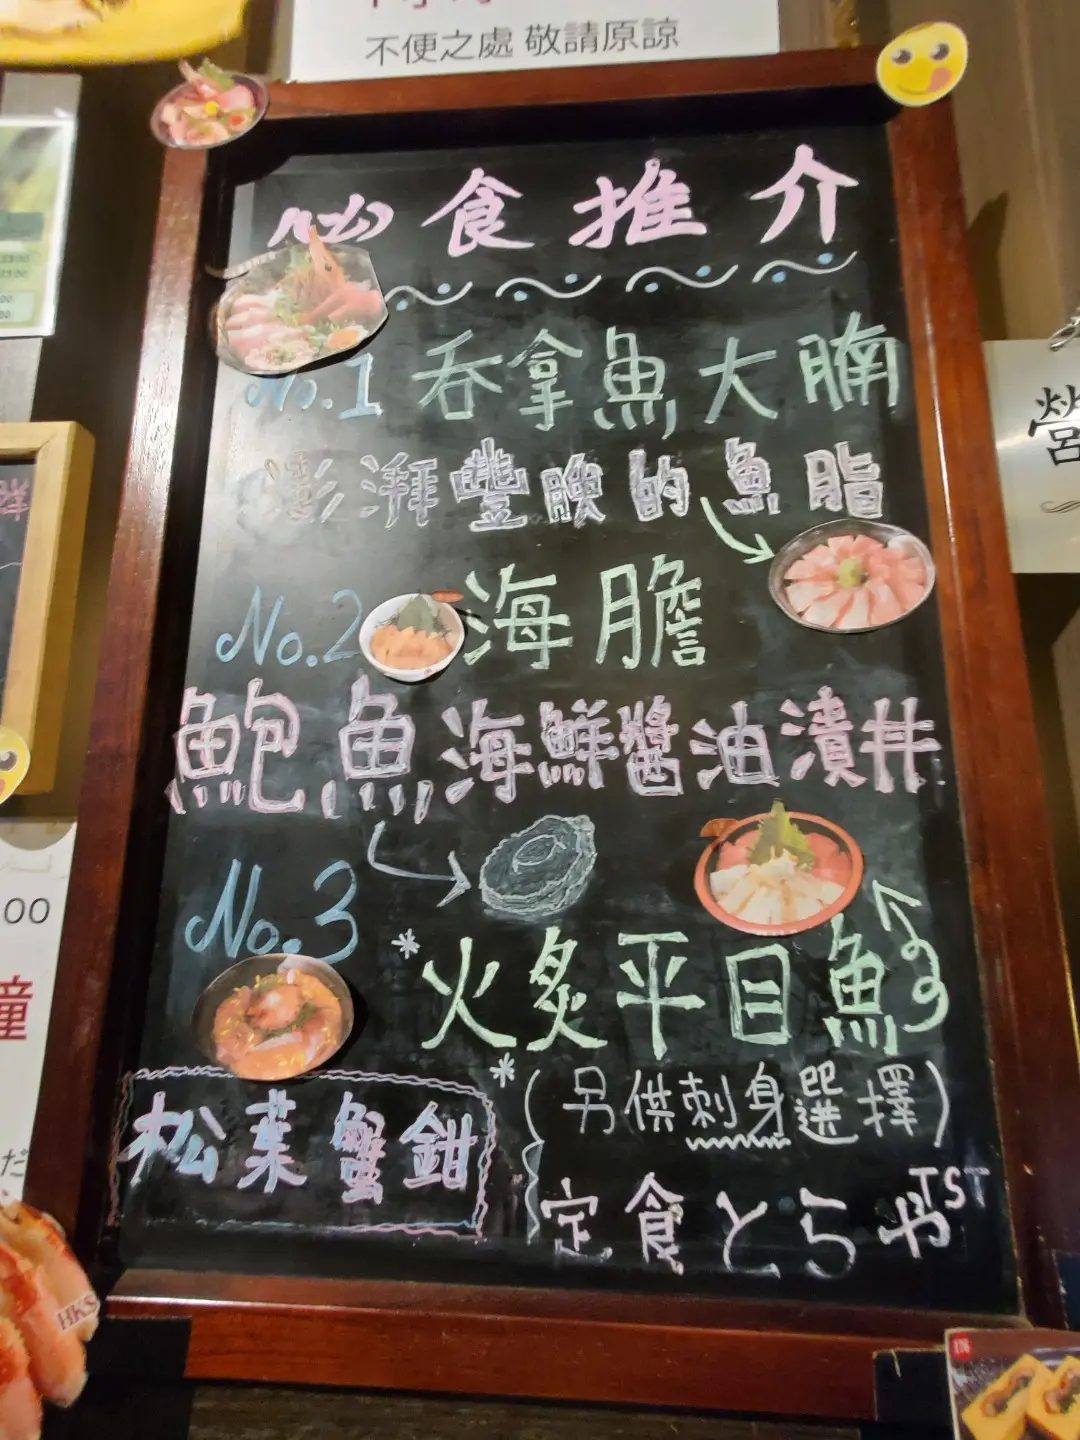 不便之處 敬請原諒
必食推介
No.1 吞拿魚大腩
澎湃豐腴的魚脂
No.2 海膽
鮑魚海鮮醬油漬丼
No.3
*火炙平目魚
*(另供刺身選擇)
松葉蟹鉗
定食とらや TST
營
00
だ
HKS